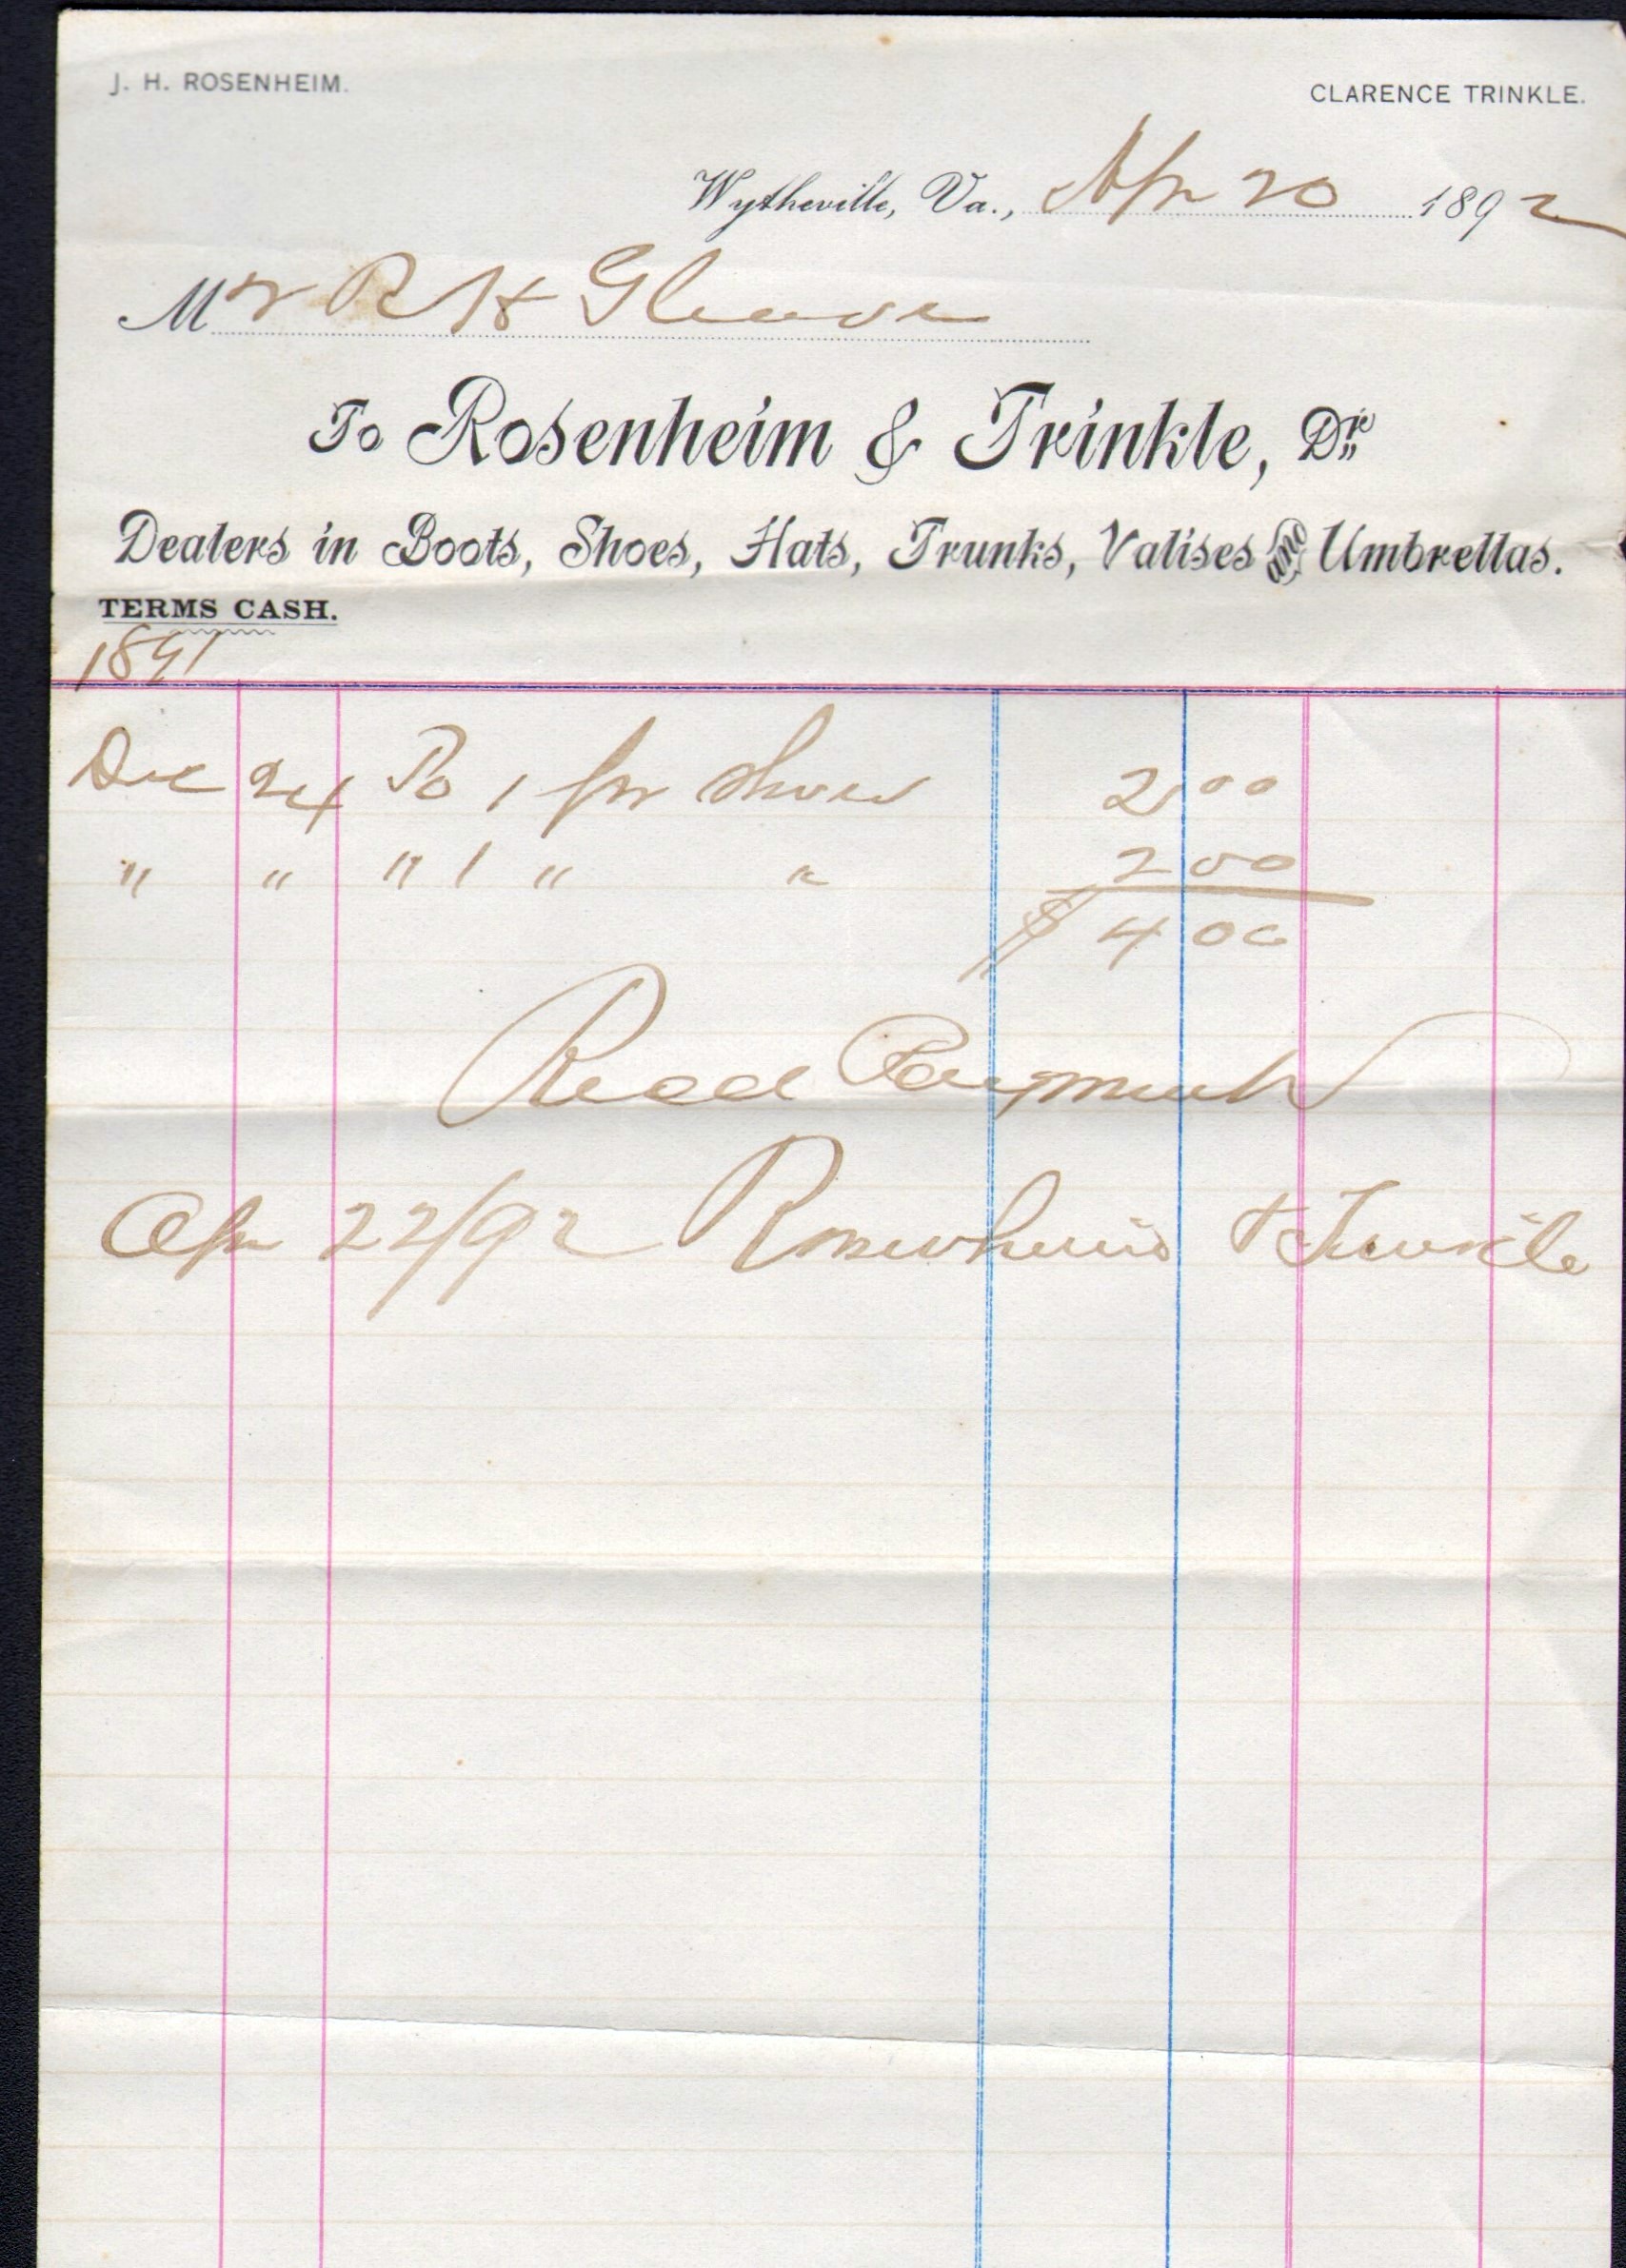 J. H. ROSENHEIM.
CLARENCE TRINKLE.
Wytheville, Va., Apr 20 1892
Mr R H Gleaves
To Rosenheim & Trinkle, Dr.
Dealers in Boots, Shoes, Hats, Trunks, Valises and Umbrellas.
TERMS CASH.
1891
Dec 24 To 1 pr Shoes 2 00
" " " 1 " " 2 00
$ 4 00
Recd Payment
Apr 22/92 Rosenheim & Trinkle